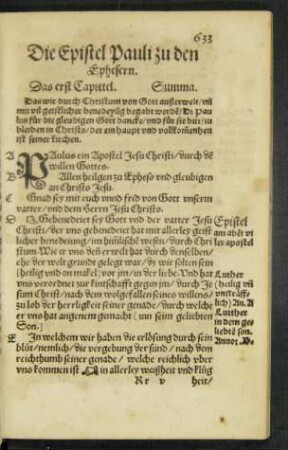 633
Die Epistel Pauli zu den
Ephesern.
Das erst Capittel. Summa.
Das wir durch Christum von Gott außerwelt/vñ
mit vil geistlicher benedeyüg begabt wordē/Di Pau
lus für die gleubigen Gott dancke/vnd für sie bitt/zu
bleiben in Christo/der ein haupt vnd volkomēnheit
ist seiner kirchen.
A
B
PAulus ein Apostel Jesu Christi/durch dē
willen Gottes.
Allen heilgen zu Epheso vnd gleubigen
an Christo Jesu.
C Gnad sey mit euch vnnd frid von Gott vnserm
vatter/vnd dem Herrn Jesu Christo.
D Gebenedeiet sey Gott vnd der vatter Jesu
Christi/der vns gebenedeiet hat mit allerley geist
licher benedeiung/im himlische wesen/durch Chri
stum. Wie er vns deñ erwelt hat durch denselben/
ehe der welt grunde gelegt war/dz wir solten sein
(heilig vnd on makel) vor jm/in der liebe. Vnd hat
vns verordnet zur kintschafft gegen jm/durch Je
sum Christ/nach dem wolgefallen seines willens/
zu lob der herrligkeit seiner genade/durch welche
er vns hat angenem gemacht (inn seim geliebten
Son.)
Epistel
am
ler apostel
Luther
(heilig vñ
vnsträff-
lich) An. A
Lutther
in dem ge-
liebtē son.
Annot. D.
E In welchem wir haben die erlösung durch sein
blůt/nemlich/die vergebung der sünd/nach dem
reichthumb seiner genade/welche reichlich vber
vns kommen ist in allerley weißheit vnd klüg
Rr v heit/